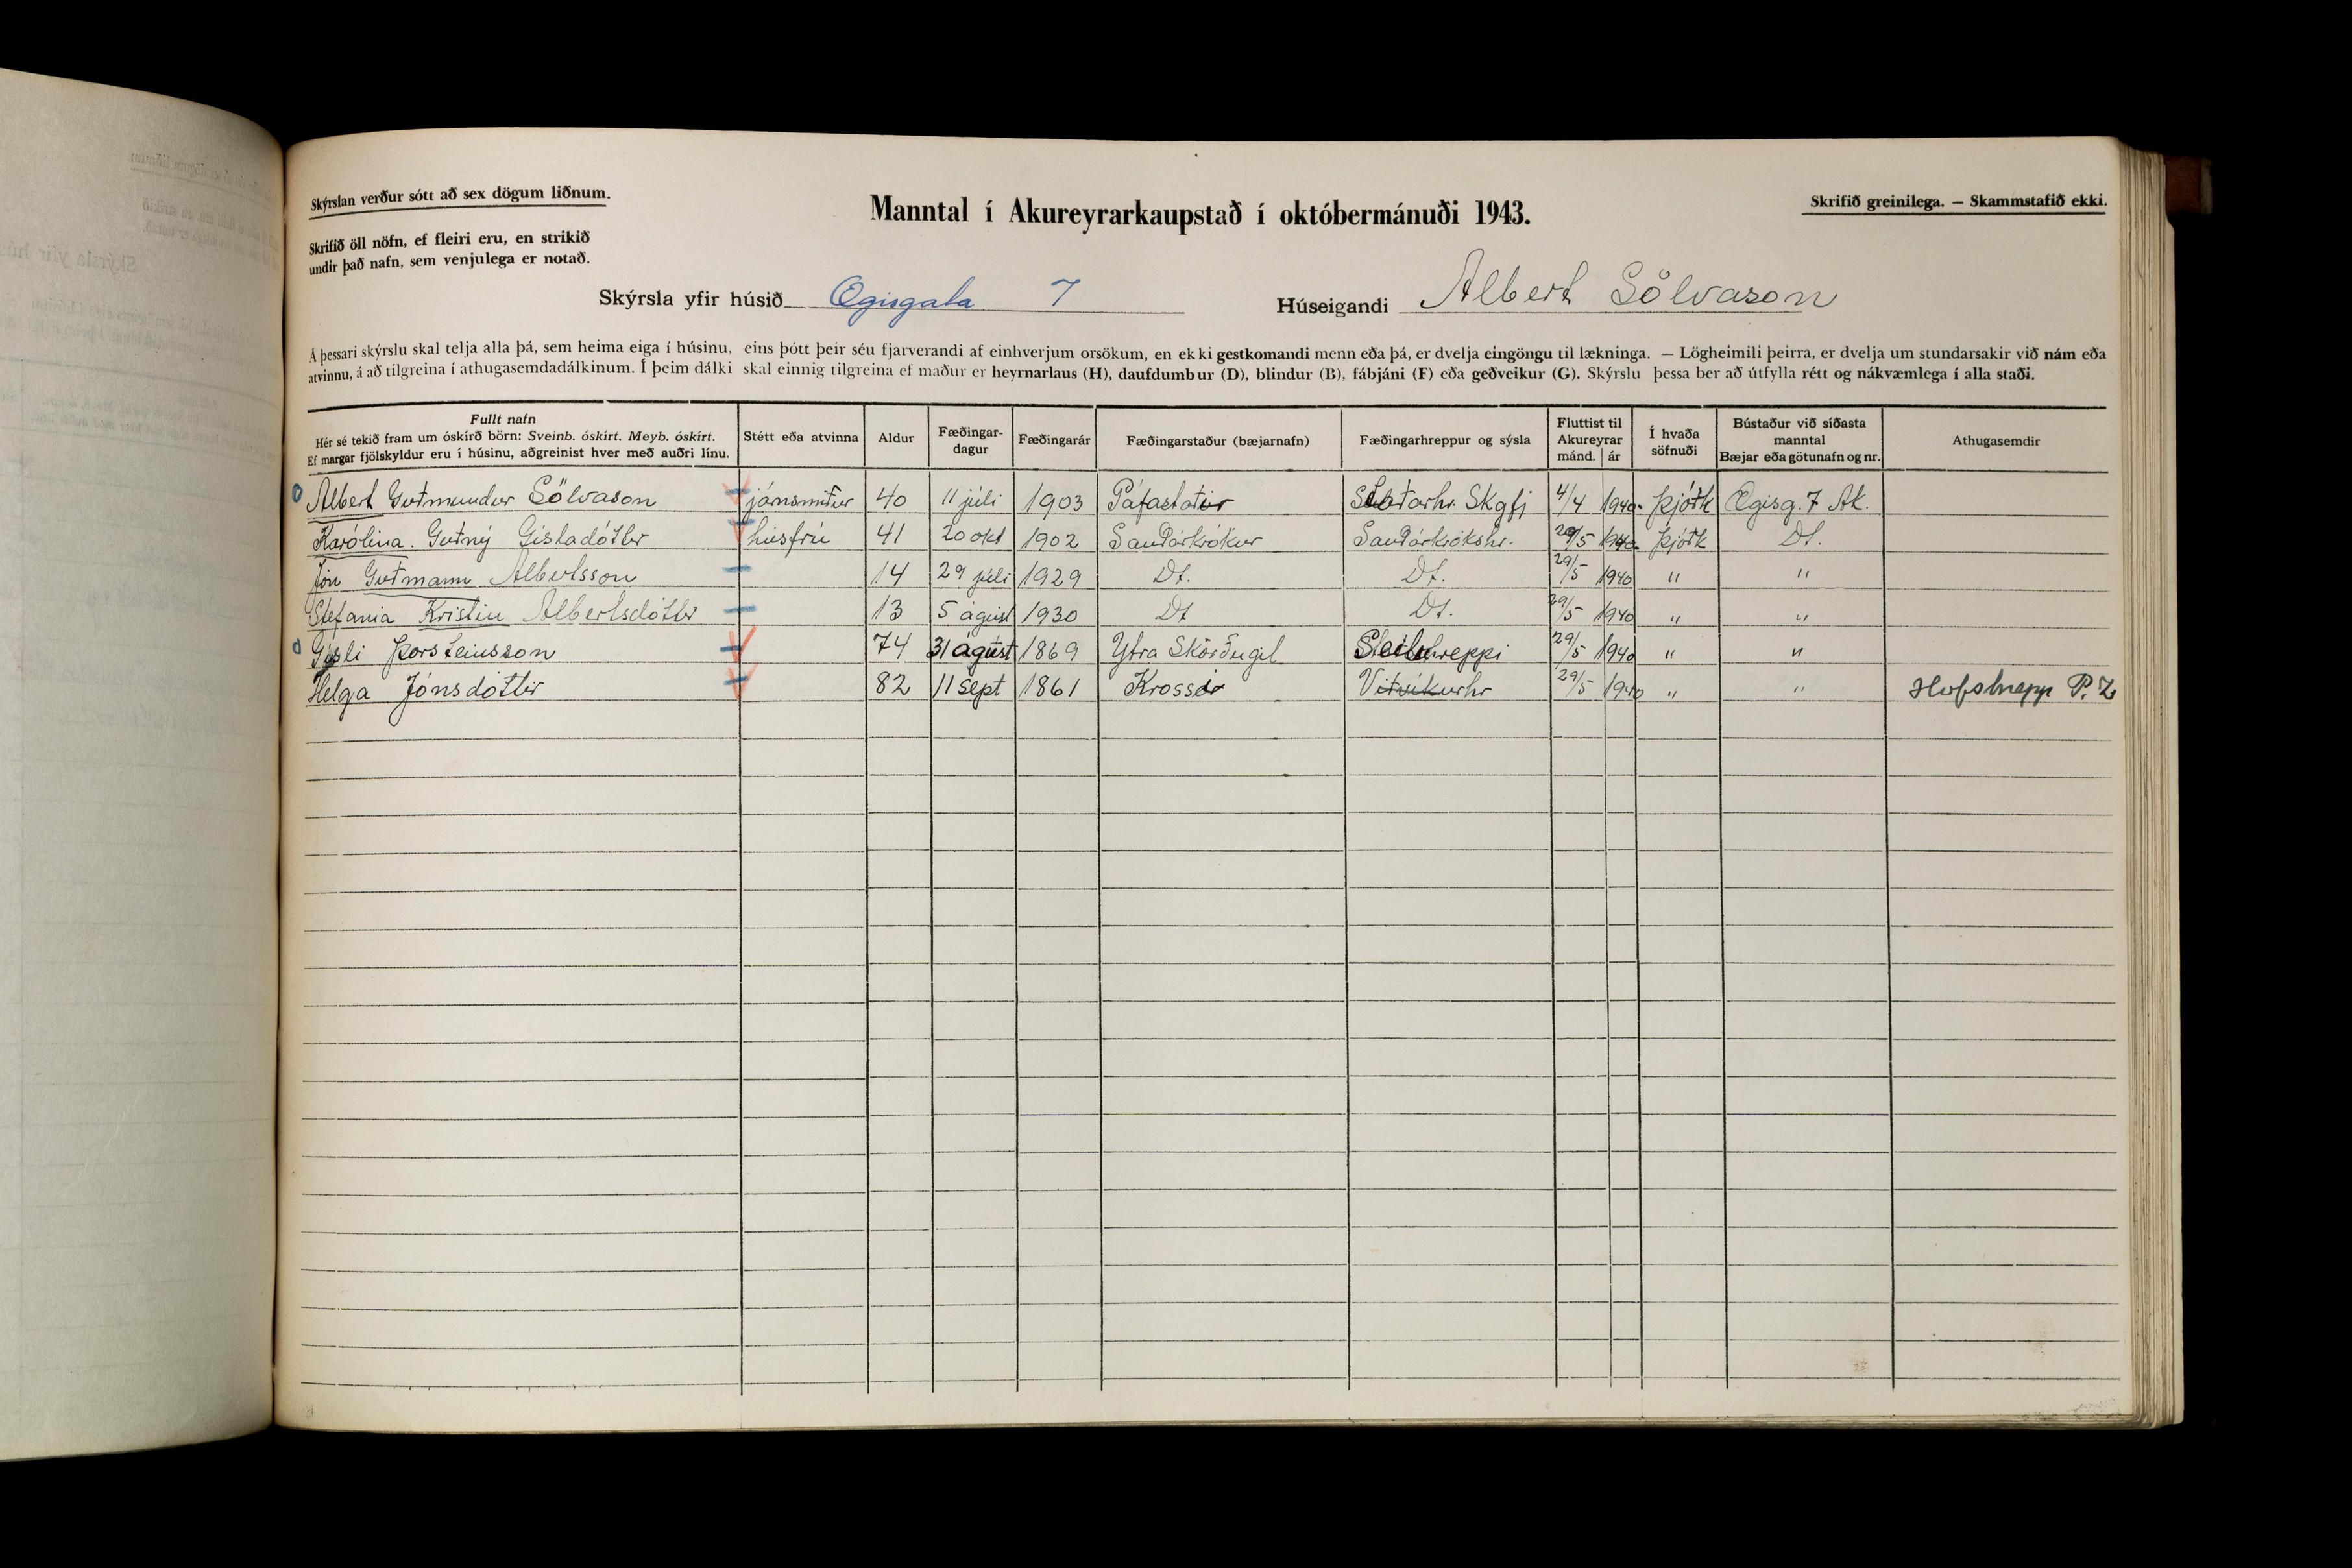 Skýrslan verður sótt að sex dögum liðnum.
Skrifið öll nöfn, ef fleiri eru, en strikið
undir það nafn, sem venjulega er notað.
Manntal í Akureyrarkaupstað í októbermánuði 1943.
Skrifið greinilega. — Skammstafið ekki.
Skýrsla yfir húsið Ægisgata 7 Húseigandi Albert Sölvason
Á þessari skýrslu skal telja alla þá, sem heima eiga í húsinu, eins þótt þeir séu fjarverandi af einhverjum orsökum, en ekki gestkomandi menn eða þá, er dvelja eingöngu til lækninga. — Lögheimili þeirra, er dvelja um stundarsakir við nám eða
atvinnu, á að tilgreina í athugasemdadálkinum. Í þeim dálki skal einnig tilgreina ef maður er heyrnarlaus (H), daufdumbur (D), blindur (B), fábjáni (F) eða geðveikur (G). Skýrslu þessa ber að útfylla rétt og nákvæmlega í alla staði.
Fullt nafn
Hér sé tekið fram um óskírð börn: Sveinb. óskírt. Meyb. óskírt.
Ef margar fjölskyldur eru í húsinu, aðgreinist hver með auðri línu.
Stétt eða atvinna
Aldur
Fæðingar-
dagur
Fæðingarár
Fæðingarstaður (bæjarnafn)
Fæðingarhreppur og sýsla
Fluttist til
Akureyrar
mánd. ár
Í hvaða
söfnuði
Bústaður við síðasta
manntal
Bæjar eða götunafn og nr.
Athugasemdir
Albert Guðmundur Sölvason járnsmiður 40 11 júli 1903 Páfastaðir Skgfj 4/4 1940 Þjóðk Ægisg. 7 Ak.
Karólína Guðný Gísladóttir húsfrú 41 20 okt 1902 Sauðárkrókur Sauðárkrókshr. 29/5 1940 Þjóðk Dt.
Jón Guðmann Albertsson 14 29 júli 1929 Dt. Dt. 29/5 1940 " "
Stefania Kristin Albertsdóttir 13 5 ágúst 1930 Dt Dt. 29/5 1940 " "
Gisli Þorsteinsson 74 31 ágúst 1869 Ytra Skörðugil 29/5 1940 " "
Helga Jónsdóttir 82 11 sept 1861 Krossi Viðvíkurhr 29/5 1940 " "